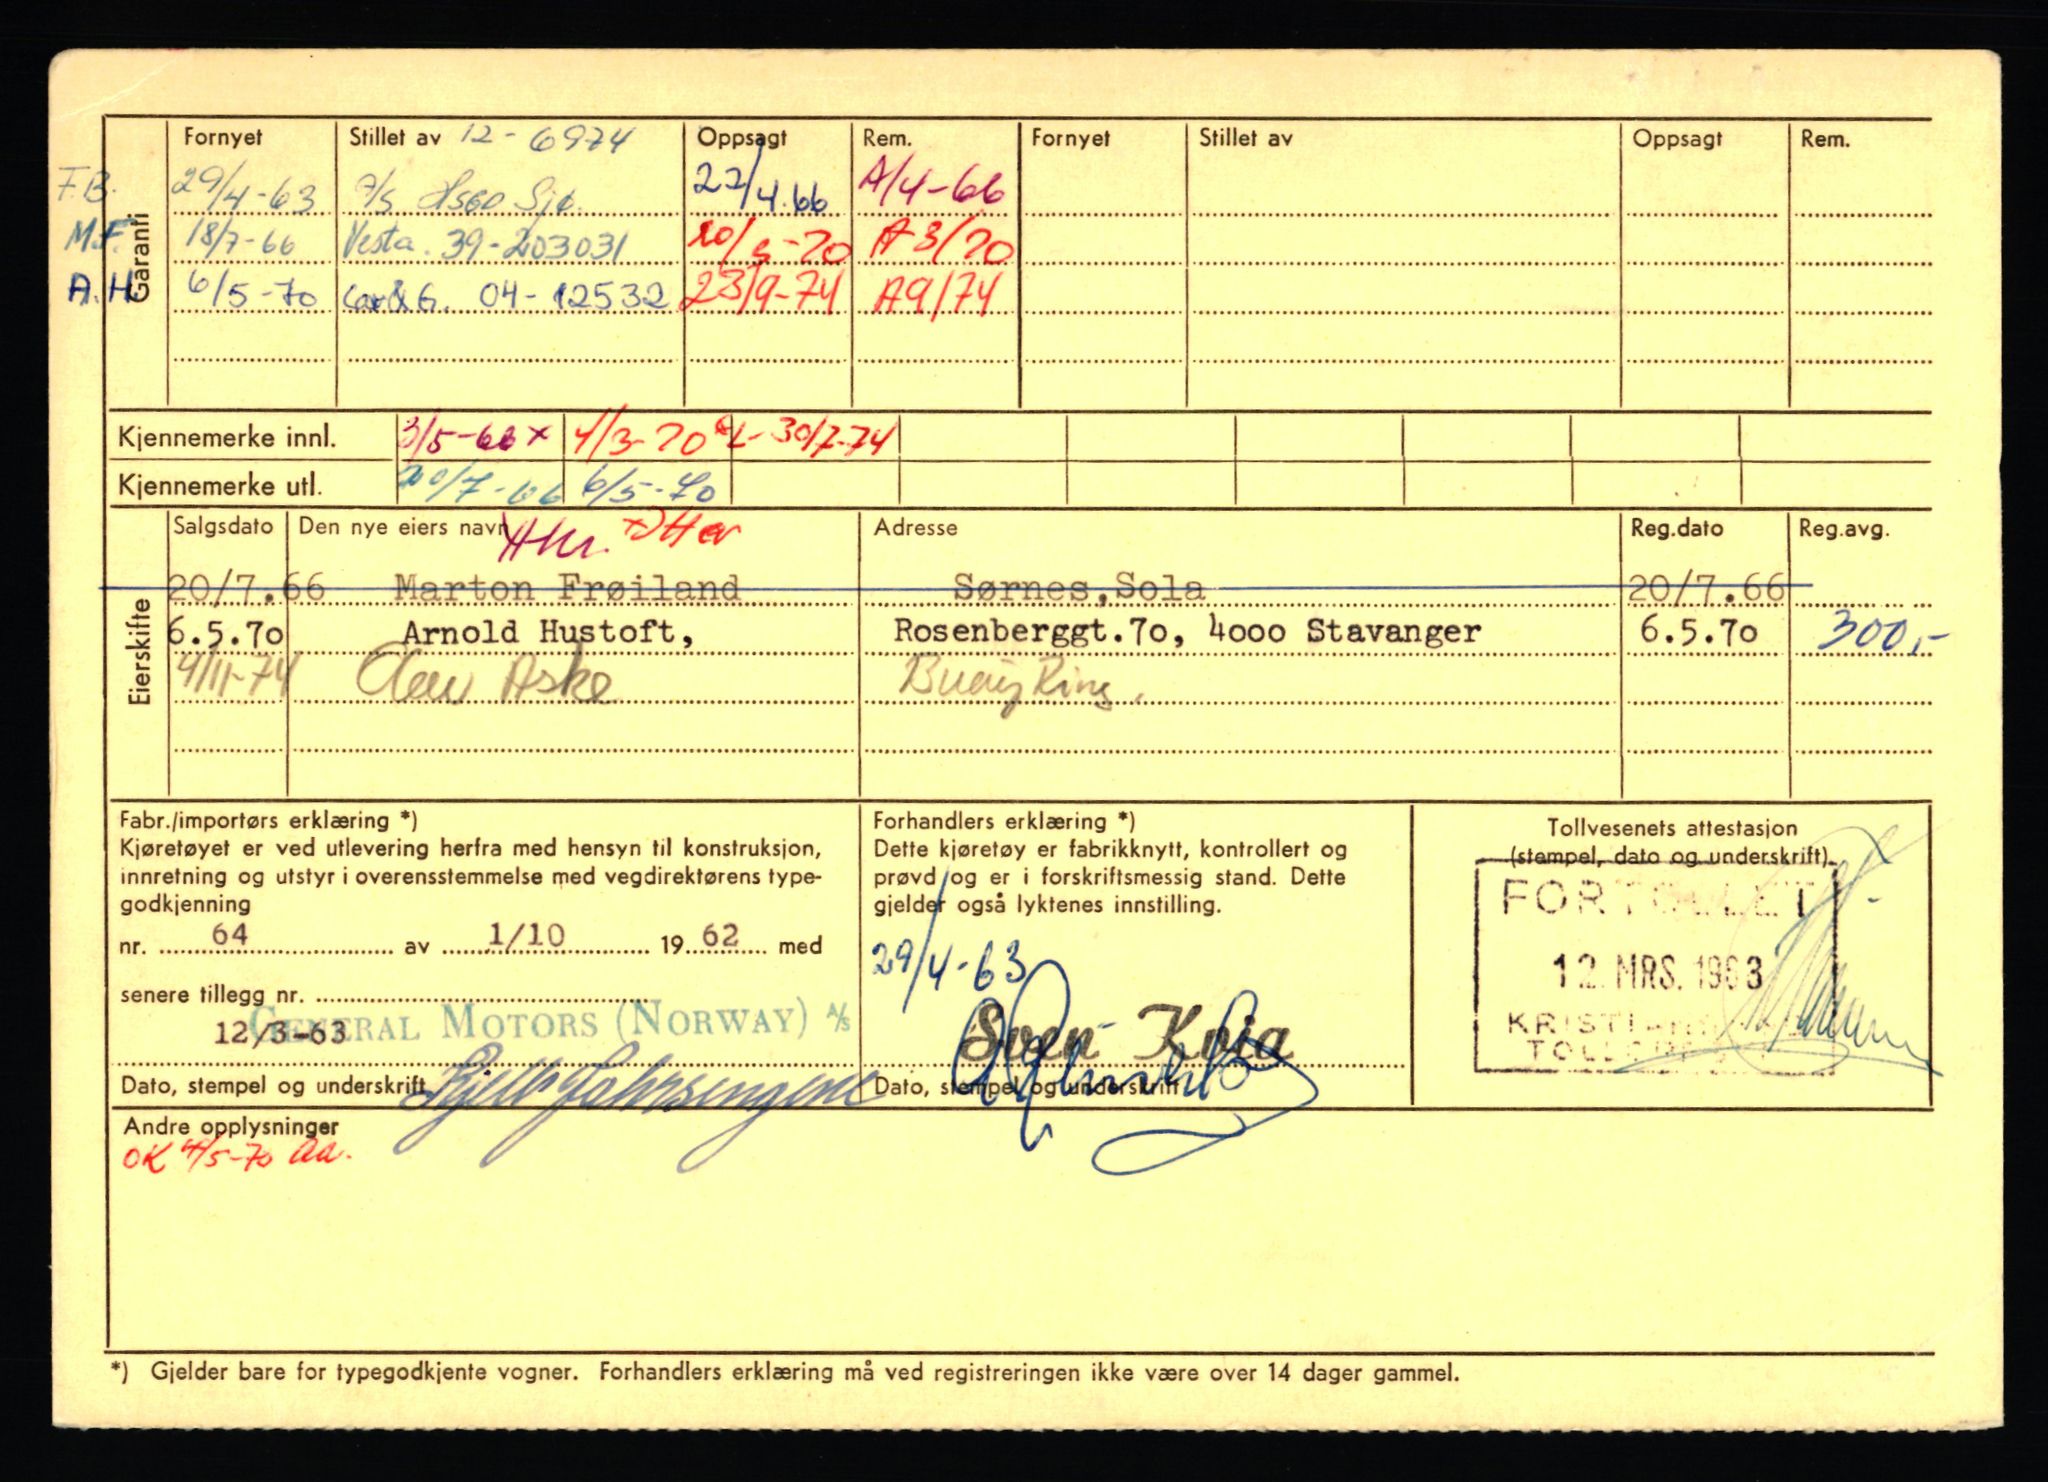 Garanti
Fornyet Stillet av 12-6974 Oppsagt Rem. Fornyet Stillet av Oppsagt Rem.
F.B. 29/4-63 22/4.66 A/4-66
M.F. 18/7-66 Vesta. 39-203031 20/3-70 A3/70
A.H. 6/5-70 04-12532 23/9-74 A9/74
Kjennemerke innl. 3/5-66 x 4/3-70 30/7-74
Kjennemerke utl. 20/7-66 6/5-70
Eierskifte
Salgsdato Den nye eiers navn Adresse Reg.dato Reg.avg.
20/7.66 Marton Frøiland Sørnes, Sola 20/7.66
6.5.70 Arnold Hustoft, Rosenberggt.70, 4000 Stavanger 6.5.70 300,-
4/11-74 Aske
Fabr./importørs erklæring *)
Kjøretøyet er ved utlevering herfra med hensyn til konstruksjon,
innretning og utstyr i overensstemmelse med vegdirektørens type-
godkjenning
nr. 64 av 1/10 19 62 med
senere tillegg nr.
GENERAL MOTORS (NORWAY) A/S
12/3-63
Dato, stempel og underskrift
Forhandlers erklæring *)
Dette kjøretøy er fabrikknytt, kontrollert og
prøvd og er i forskriftsmessig stand. Dette
gjelder også lyktenes innstilling.
29/4-63
Sven Kvia
Dato, stempel og underskrift
Tollvesenets attestasjon
(stempel, dato og underskrift)
FORTOLLET
12. MRS. 1963
Andre opplysninger
OK 4/5-70 Aa.
*) Gjelder bare for typegodkjente vogner. Forhandlers erklæring må ved registreringen ikke være over 14 dager gammel.